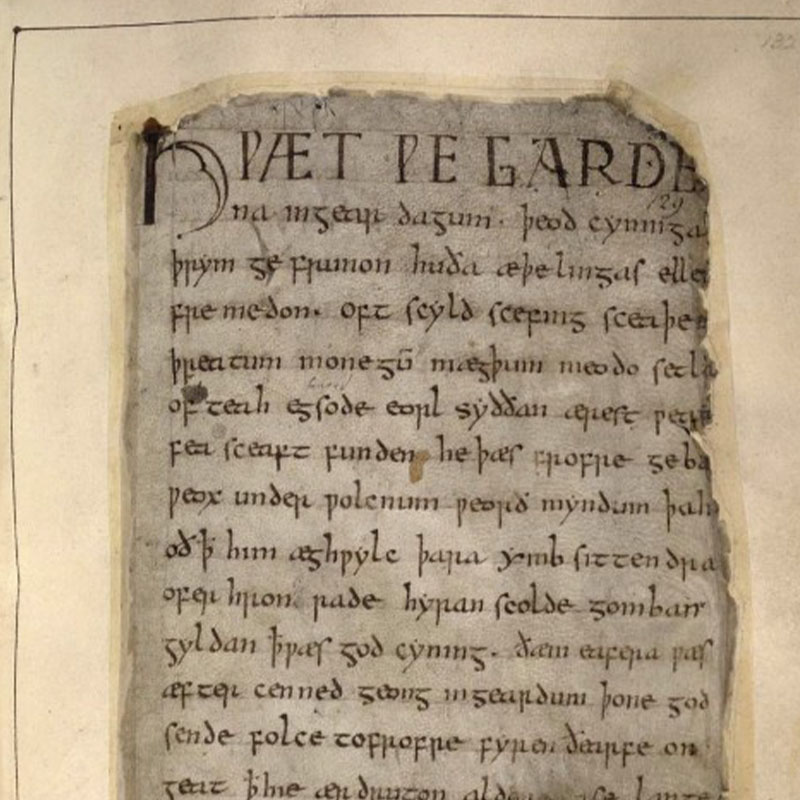 HǷÆT ǷE GARDE
na ingear dagum. þeod cyninga
þrym ge frunon huða æþelingas elle
fremedon. oft scyld scefing sceaþe
þreatum monegū mægþum meodo setla
of teah egsode eorl syððan ærest ƿear
fea sceaft funden he þæs frofre geba
ƿeox under ƿolcnum ƿeorð myndum þah
oð ꝥ him æghƿylc þara ymb sittendra
ofer hron rade hyran scolde gomban
gyldan ꝥ ƿæs god cyning. ðæm eafera ƿæs
æfter cenned geong in geardum þone god
sende folce tofrofre fyren ðearfe on
geat ꝥ hie ær drugon lange